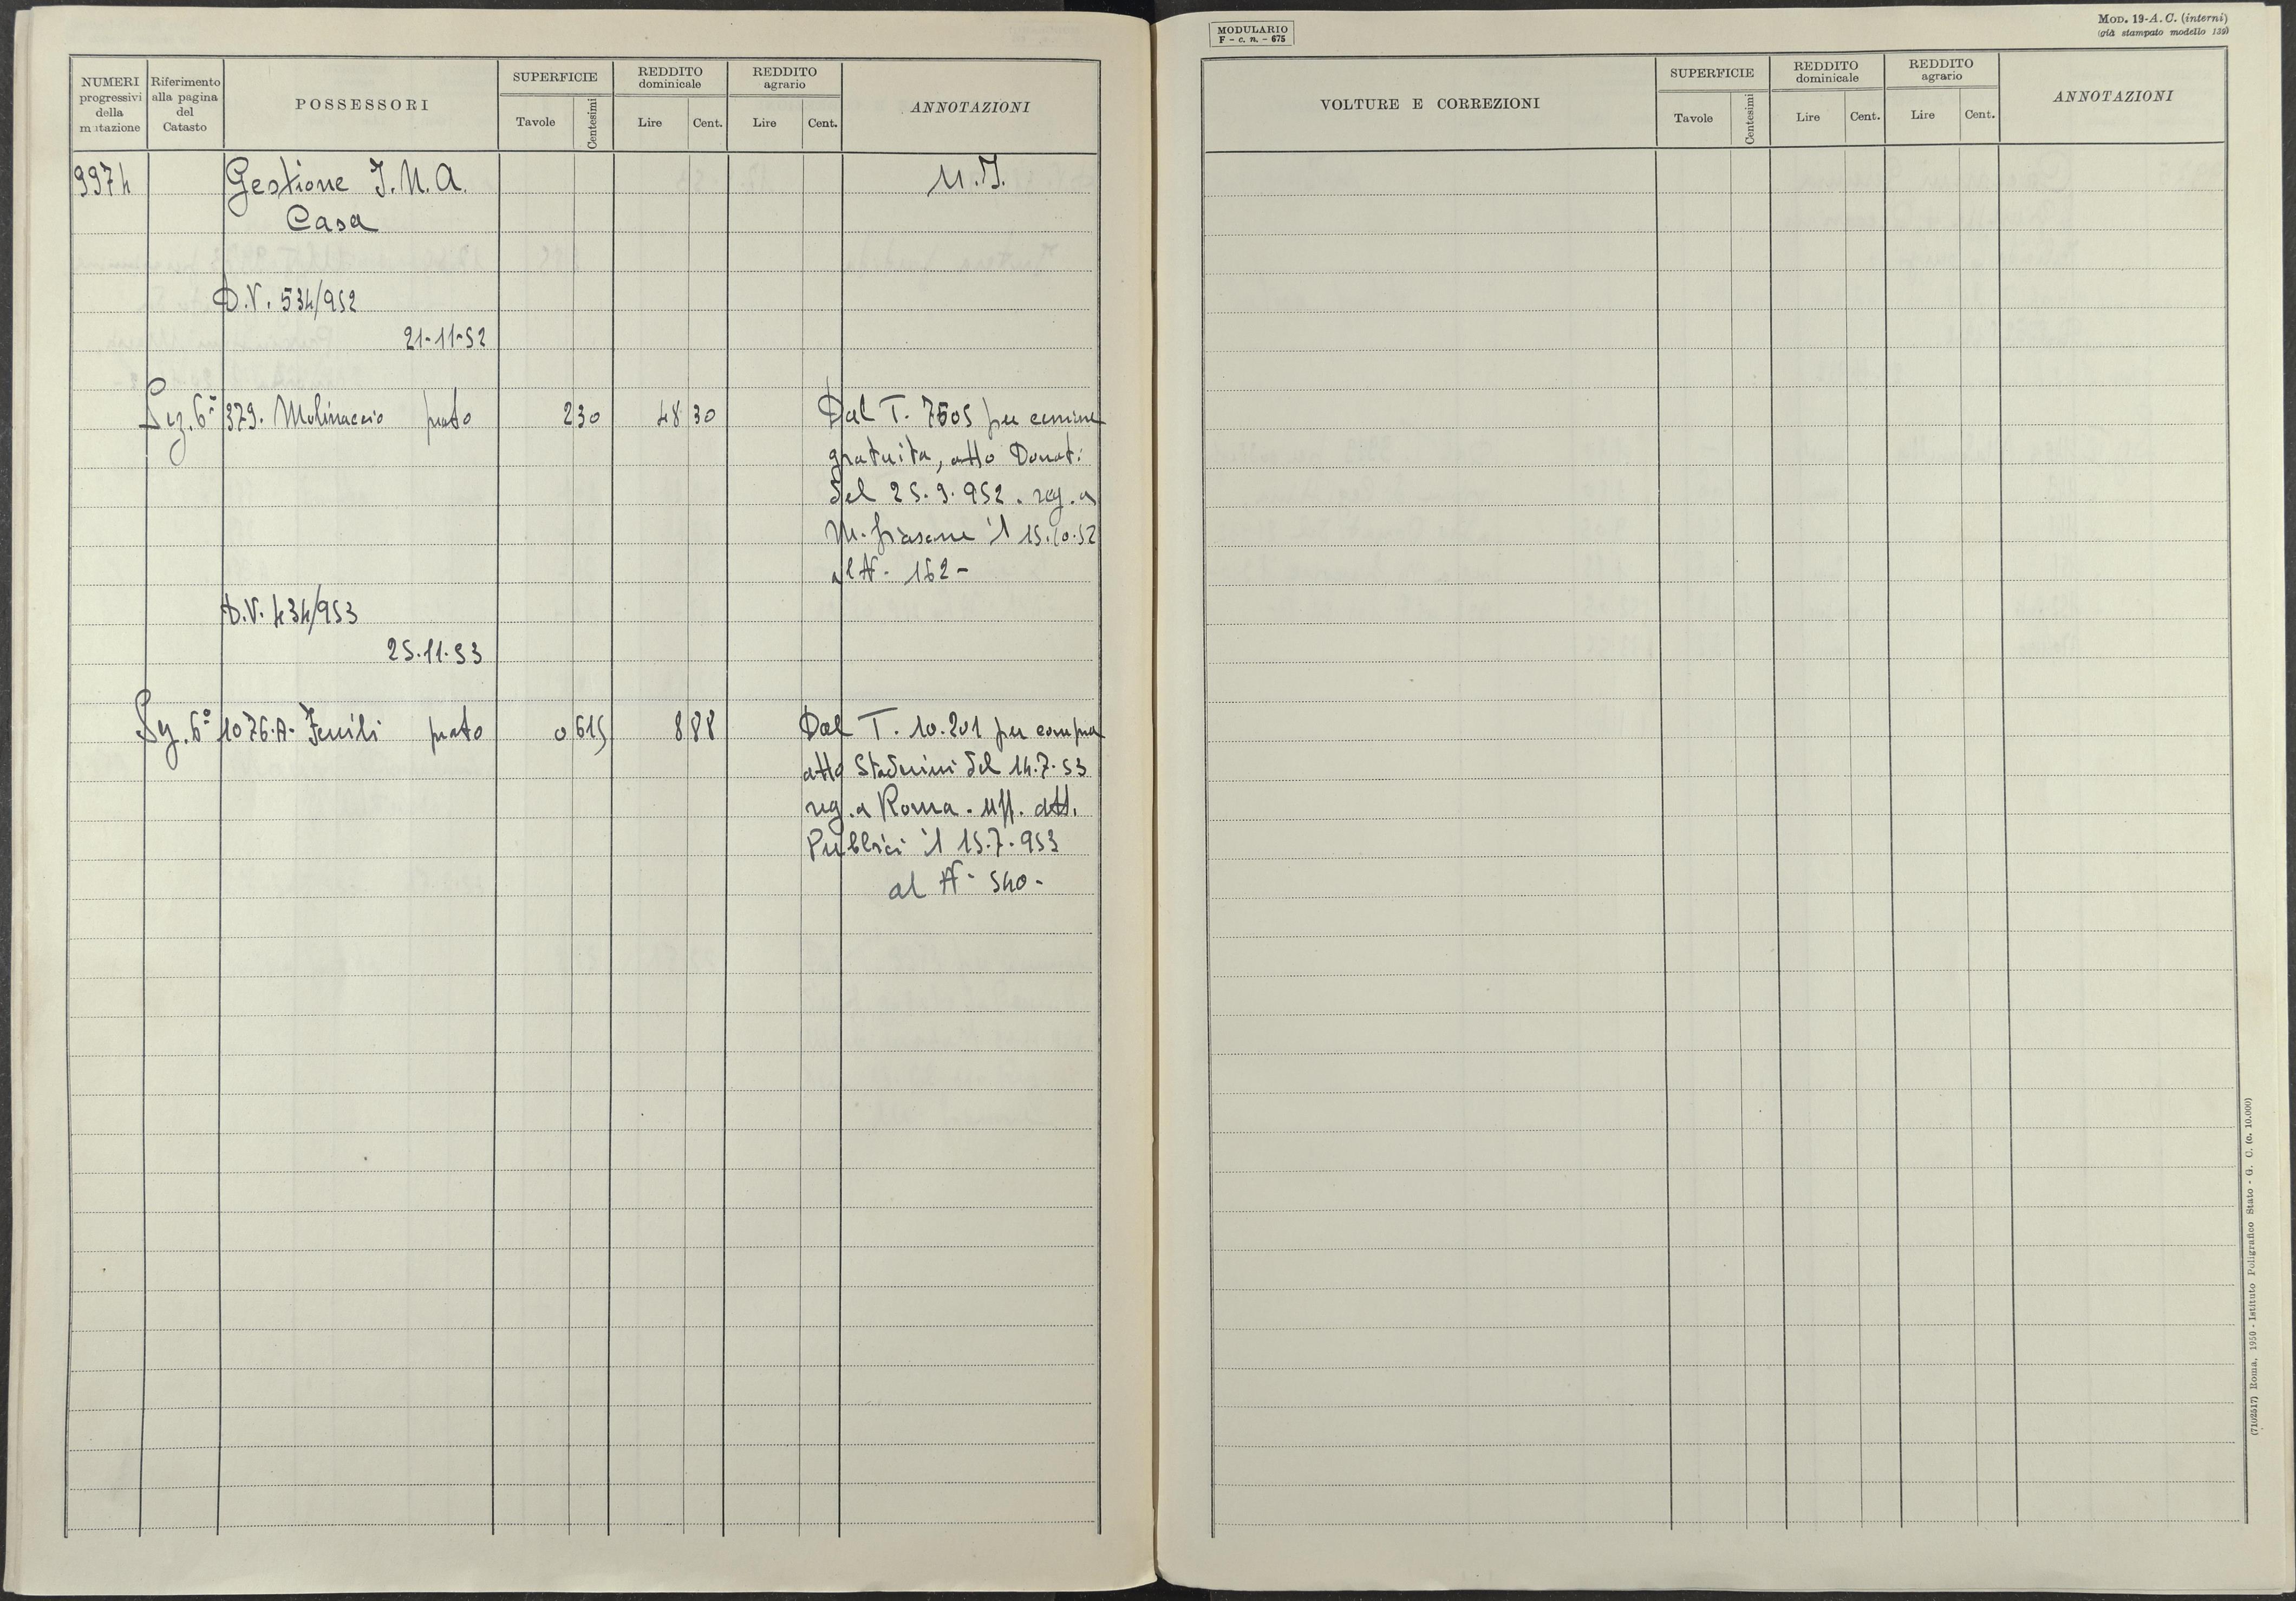 NUMERI progressivi della mutazione
Riferimento alla pagina del Catasto
POSSESSORI
SUPERFICIE
Tavole Centesimi
REDDITO dominicale
Lire Cent.
REDDITO agrario
Lire Cent.
ANNOTAZIONI
9974 Gestione I.N.A. U.I.
Casa
D.V. 534/952
21-11-52
Sez. 6ª 379. Molinaccio prato 2 30 48 30 Dal T. 7505 per
gratuita, atto Donati
del 25.9.952. reg. a
M. frascone il 15.10.52
al N. 162-
D.V. 434/953
25.11.53
Sez. 6ª 1076.A. Fenili prato 0 615 8 88 Dal T. 10.201 per compra
atto Staderini del 14.7.53
reg. a Roma. Uff. atti
Pubblici il 15.7.953
al N. 540-
MODULARIO
F - c. n. - 675
MOD. 19-A. C. (interni)
(già stampato modello 139)
VOLTURE E CORREZIONI
SUPERFICIE
Tavole Centesimi
REDDITO dominicale
Lire Cent.
REDDITO agrario
Lire Cent.
ANNOTAZIONI
(7102517) Roma, 1950 - Istituto Poligrafico Stato - G. C. (c. 10.000)